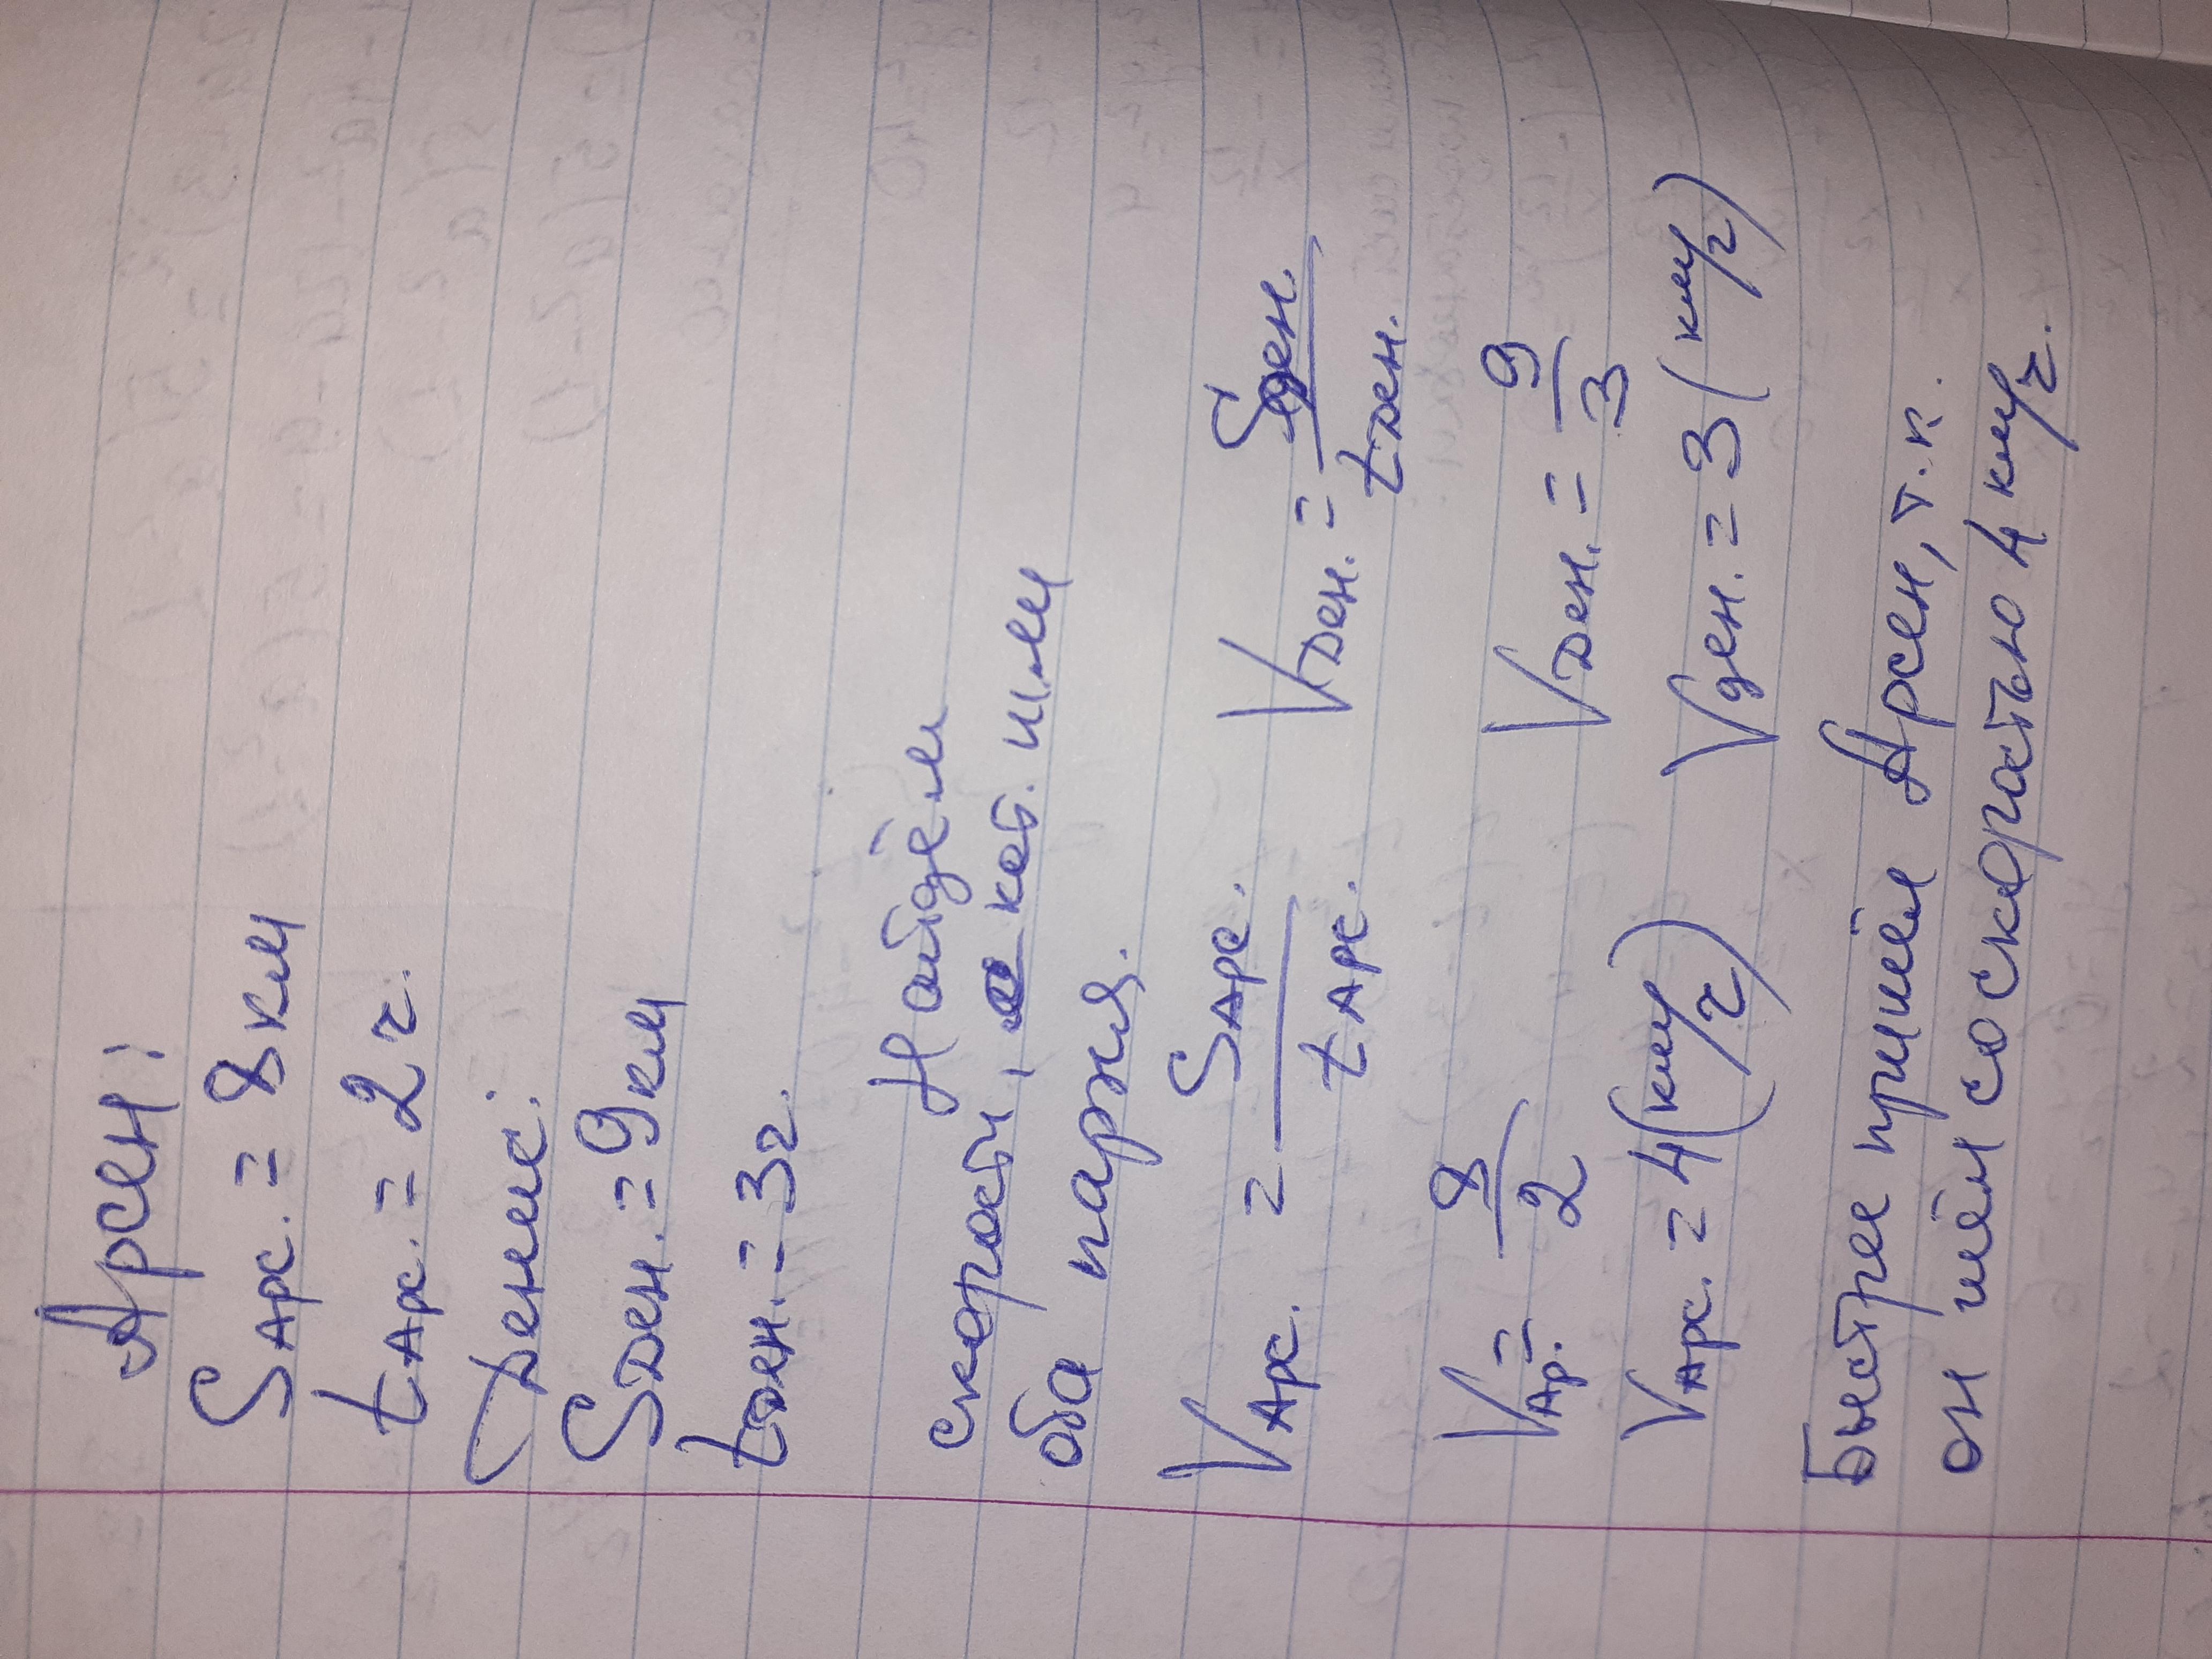 Арсен:
Sарс. = 8 км
tарс. = 2 ч.
Денис:
Sден. = 9 км
tден. = 3 ч.
Найдём
скорость, с кот. шли
оба парня.
Vарс. = Sарс. / tарс. Vден. = Sден. / tден.
Vар. = 8/2 Vден. = 9/3
Vарс. = 4 (км/ч) Vден. = 3 (км/ч)
Быстрее пришёл Арсен, т. к.
он шёл со скоростью 4 км/ч.